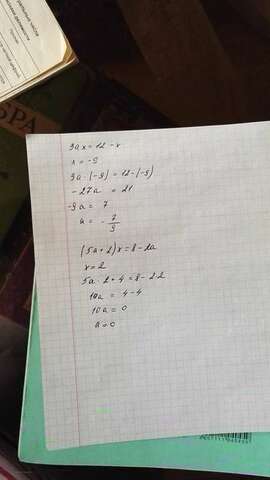 3ax = 12 - x
x = -9
3a · (-9) = 12 - (-9)
-27a = 21
-9a = 7
a = - 7/9
(5a + 2) x = 8 - 2a
x = 2
5a · 2 + 4 = 8 - 2·2
10a = 4 - 4
10a = 0
a = 0